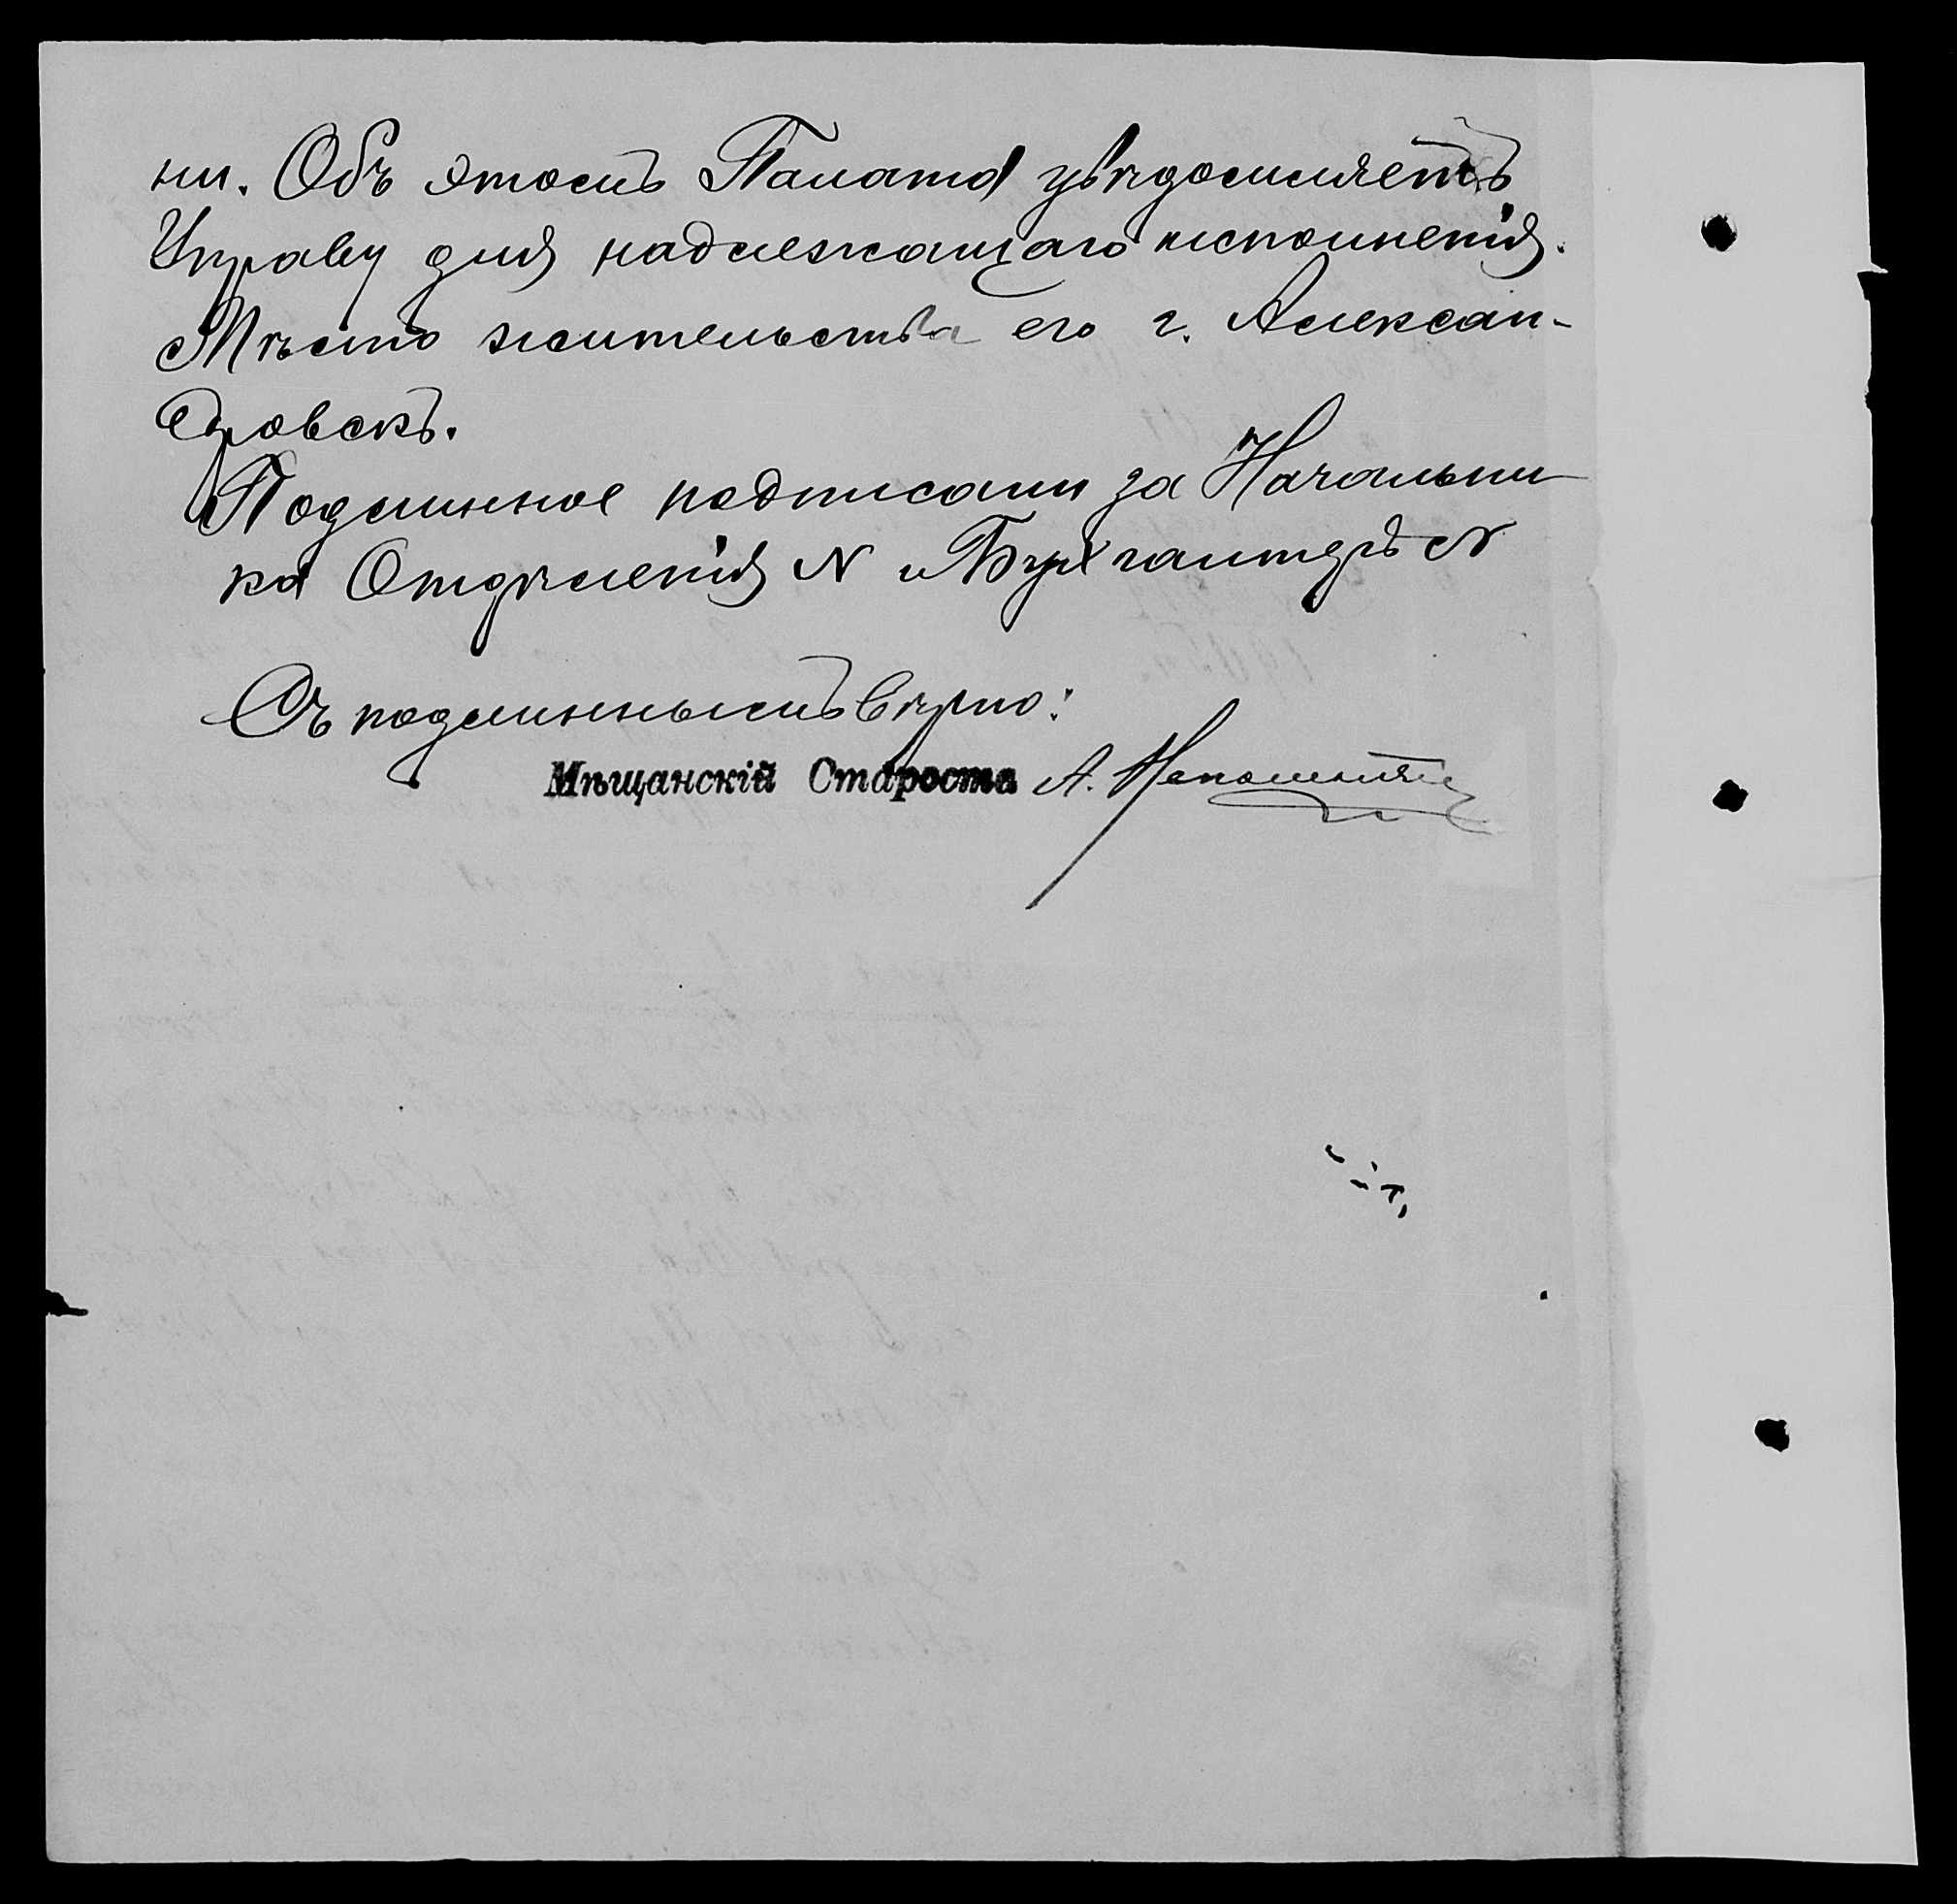 ни. Объ этомъ Палата увѣдомляетъ
Управу для надлежащаго исполненія.
Мѣсто жительства его г. Алексан-
дровскъ.
Подлинное подписали за Начальни
ка Отдѣленія N и Бухгалтеръ N
Съ подлиннымъ вѣрно:
Мѣщанскій Староста А.